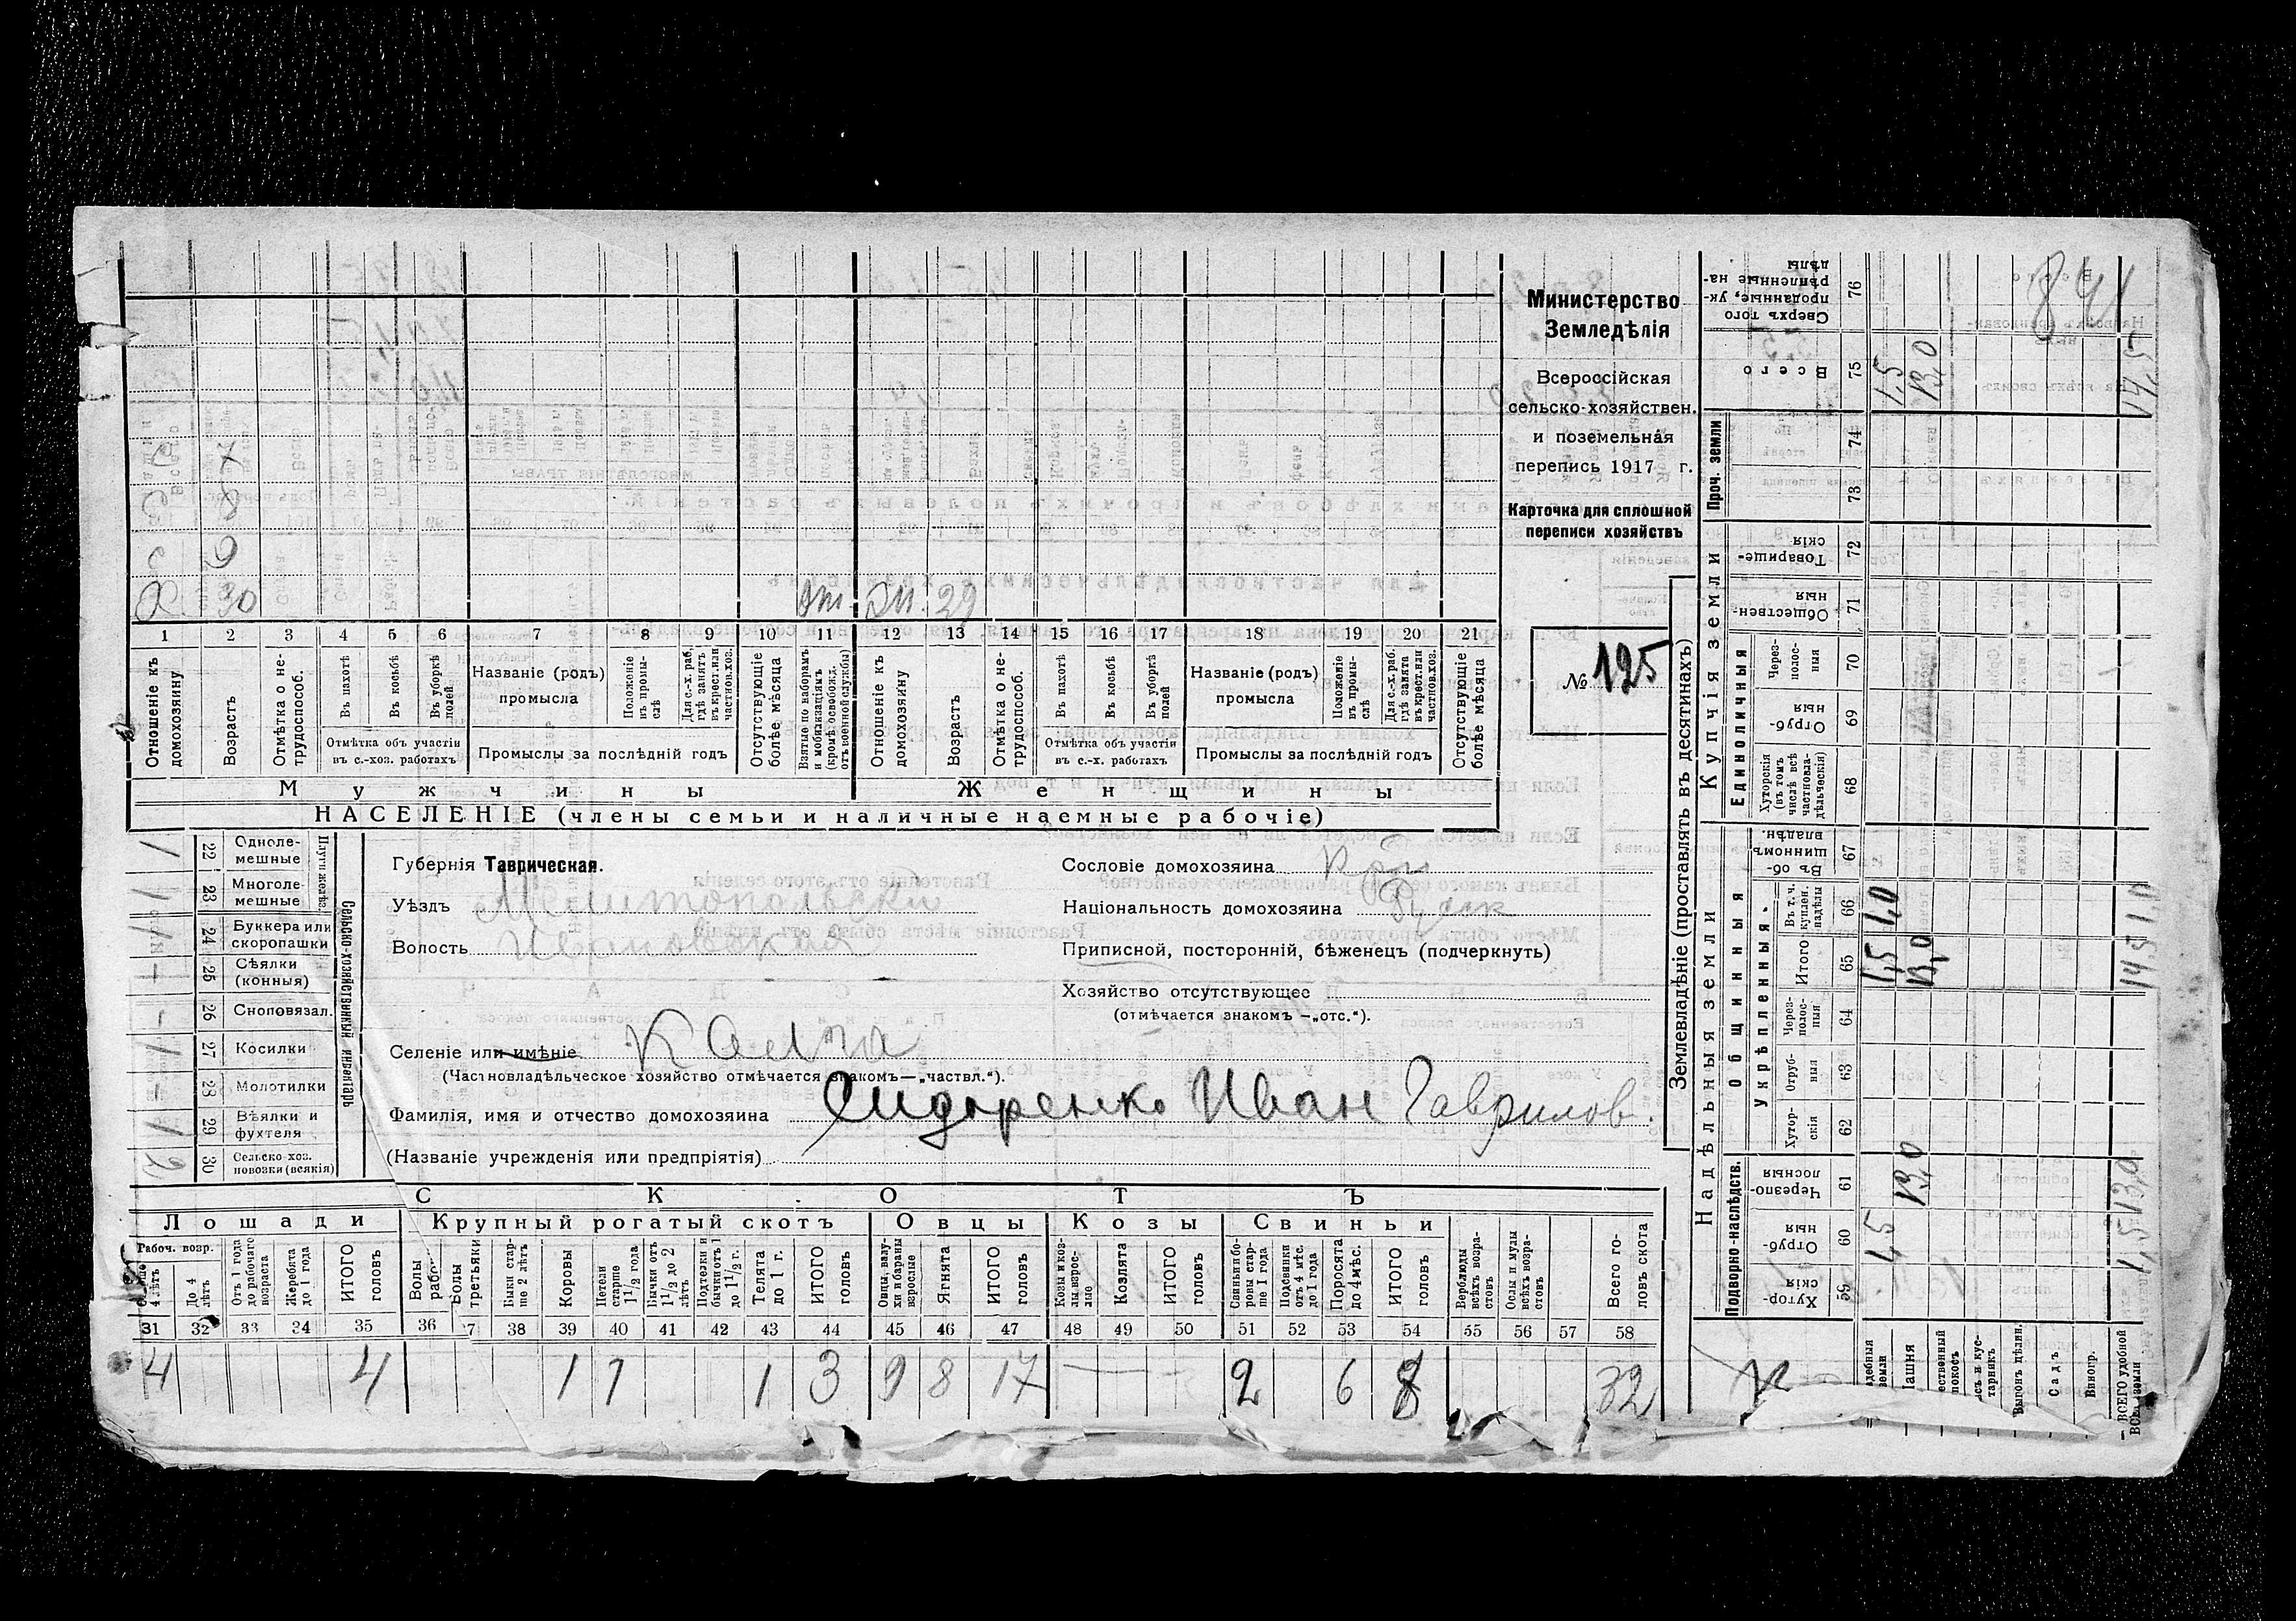 Министерство
Земледѣлія
Всероссійская
сельско-хозяйствен.
и поземельная
перепись 1917 г.
Карточка для сплошной
переписи хозяйствъ
№ 125
С 7
С 8
С 9
Х. 30 29
1 2 3 4 5 6 7 8 9 10 11 12 13 14 15 16 17 18 19 20 21
Отношеніе къ домохозяину
Возрастъ
Отмѣтка о не-трудоспособ.
Въ пахотѣ
Въ косьбѣ
Въ уборкѣ полей
Отмѣтка объ участіи въ с.-хоз. работахъ
Названіе (родъ) промысла
Положеніе въ промы-слѣ
Для с.-х. раб. гдѣ занятъ въ крест. или частнов. хоз.
Промыслы за послѣдній годъ
Отсутствующіе болѣе мѣсяца
Взятые по наборамъ и мобилизаціямъ (кромѣ освобожд. отъ военной службы)
Отношеніе къ домохозяину
Возрастъ
Отмѣтка о не-трудоспособ.
Въ пахотѣ
Въ косьбѣ
Въ уборкѣ полей
Отмѣтка объ участіи въ с.-х. работахъ
Названіе (родъ) промысла
Положеніе въ промы-слѣ
Для с.-х. раб. гдѣ занята въ крест. или частнов. хоз.
Промыслы за послѣдній годъ
Отсутствующіе болѣе мѣсяца
Мужчины Женщины
НАСЕЛЕНІЕ (члены семьи и наличные наемные рабочіе)
Сельско-хозяйственный инвентарь
Плуги желѣз.
1 22 Одноле-мешные
1 23 Многоле-мешные
1 24 Буккера или скоропашки
– 25 Сѣялки (конныя)
– 26 Сноповязал.
1 27 Косилки
– 28 Молотилки
1 29 Вѣялки и фухтеля
2 30 Сельско-хоз. повозки (всякія)
Губернія Таврическая.
Уѣздъ Мелитопольский
Волость Ивановская
Сословіе домохозяина Кр-н
Національность домохозяина Русск
Приписной, посторонній, бѣженецъ (подчеркнуть)
Хозяйство отсутствующее
(отмѣчается знакомъ —„отс.“).
Селеніе или имѣніе Калга
(Частновладѣльческое хозяйство отмѣчается знакомъ—„частвл.“).
Фамилія, имя и отчество домохозяина Сидоренко Иван Гаврилов.
(Названіе учрежденія или предпріятія)
СКОТЪ
Лошади Крупный рогатый скотъ Овцы Козы Свиньи
Рабоч. возр.
До 4 лѣтъ
Отъ 1 года до рабочаго возраста
Жеребята до 1 года
ИТОГО головъ
Волы
Волы третьяки
Быки стар-ше 2 лѣтъ
Коровы
Нетели старше 1 1/2 года
Бычки отъ 1 1/2 до 2 лѣтъ
Подтелки и бычки отъ 1 до 1 1/2 г.
Телята до 1 г.
ИТОГО головъ
Овцы, валу-хи и бараны взрослые
Ягнята
ИТОГО головъ
Козы и коз-лы взрос-лые
Козлята
ИТОГО головъ
Свиньи и бо-ровы стар-ше 1 года
Подсвинки отъ 4 мѣс. до 1 года
Поросята до 4 мѣс.
ИТОГО головъ
Верблюды всѣхъ возра-стовъ
Ослы и мулы всѣхъ возра-стовъ
Всего го-ловъ скота
31 32 33 34 35 36 7 38 39 40 41 42 43 44 45 46 47 48 49 50 51 52 53 54 55 56 57 58
4 4 1 1 1 3 9 8 17 — – 2 6 8 32
Землевладѣніе (проставлять въ десятинахъ)
Надѣльныя земли Купчія земли Проч. земли
Подворно-наслѣдств.
Общинныя
Укрѣпленныя
Единоличныя
Хутор-скія 59
Отруб-ныя 60 1,5
Черезпо-лосныя 61 13,0
Хутор-скія 62
Отруб-ныя 63
Через-полос-ныя 64
Итого 65 1,5 13,0 14,5
Въ т. ч. куплен. надѣлы 66 1,0 1,0
Въ об-щинномъ владѣн. 67
Хуторскія (въ томъ числѣ всѣ частновла-дѣльческія) 68
Отруб-ныя 69
Через-полос-ныя 70
Обществен-ныя 71
Товарище-скія 72
73 74
Всего 75 1,5 13,0 14,5
Сверхъ того проданные, ук-рѣпленные на-дѣлы 76
Выгонъ цѣлин.
Садъ
Виногр.
ВСЕГО удобной земли